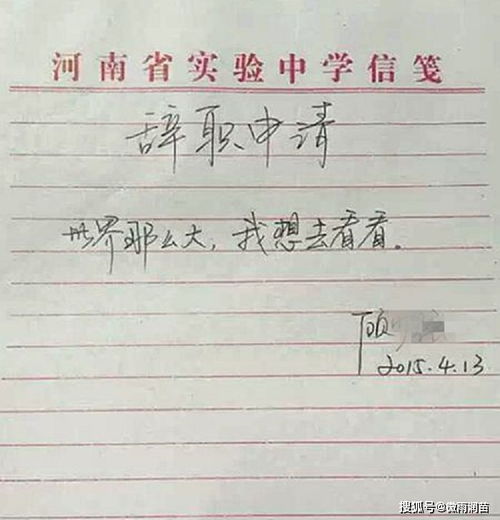 河南省实验中学信笺
辞职申请
世界那么大，我想去看看。
顾
2015.4.13
搜狐号@微雨润苗